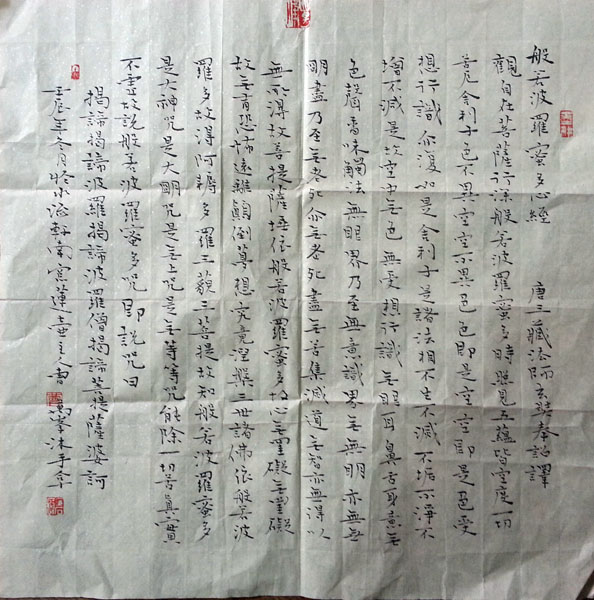 般若波羅蜜多心經 唐三藏法師玄奘奉詔譯
觀自在菩薩行深般若波羅蜜多時照見五蘊皆空度一切
苦厄舍利子色不異空空不異色色即是空空即是色受
想行識亦復如是舍利子是諸法相不生不滅不垢不淨不
增不減是故空中無色無受想行識無眼耳鼻舌身意無
色聲香味觸法無眼界乃至無意識界無無明亦無無
明盡乃至無老死亦無老死盡無苦集滅道無智亦無得以
無所得故菩提薩埵依般若波羅蜜多故心無罣礙無罣礙
故無有恐怖遠離顛倒夢想究竟涅槃三世諸佛依般若波
羅多故得阿耨多羅三藐三菩提故知般若波羅蜜多
是大神咒是大明咒是無上咒是無等等咒能除一切苦真實
不虛故說般若波羅蜜多咒即說咒曰
揭諦揭諦波羅揭諦波羅僧揭諦菩提薩婆訶
壬辰年冬月於軒南窗蓮主人書沐手